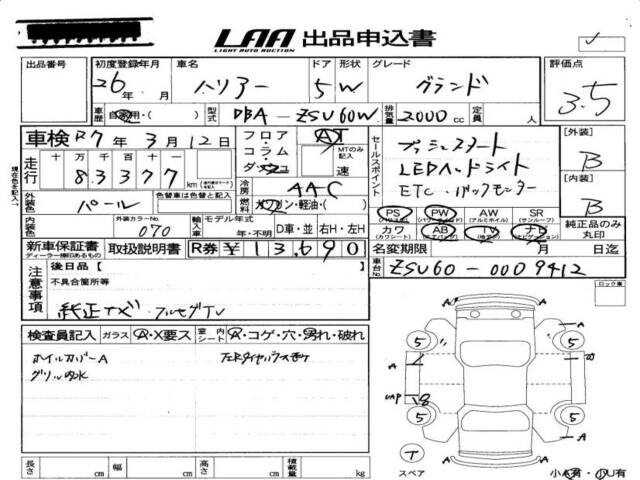 LAA 出品申込書
LIGHT AUTO AUCTION
出品番号 初度登録年月 車名 ドア 形状 グレード 評価点
26年 月 ハリアー 5 W グランド 3.5
車歴 自家用・( ) 型式 DBA-ZSU60W 排気量 2000cc 定員 人
車検 R7年3月12日 フロア コラム ダッシュ AT MTのみ記入 速
セールスポイント プッシュスタート
LEDヘッドライト
ETC・バックモニター
[外装] B
[内装] B
走行 十万 万 千 百 十 一
83377 km
現在色を記入→ 外装色 パール 色替車は色替前色を記入 ( )
冷房 AAC
燃料 ガソリン・軽油・( )
PS (パワーステアリング) PW (パワーウインドウ) AW (アルミホイル) SR (サンルーフ)
カワ (カワシート) AB (エアバッグ) TV ナビ (ナビゲーション)
純正品のみ丸印
内装色 外装カラーNO. 070 輸入車 モデル年式 年・不明 D車・並 右H・左H
新車保証書 ディーラー捺印あるもの 取扱説明書 R券 ¥13,690
名変期限 月 日迄
車台No. ZSU60-0009412
注意事項 後日品 [ ]
不具合箇所等
純正ナビ・フルセグTV
ロック車
検査員記入 ガラス A・X要ス 室内シート A・コゲ・穴・汚れ・破れ
ホイルカバーA
A A
5 5
A
5 5
A
T
スペア
小A有・小U有
長さ cm 幅 cm 高さ cm 積載量 kg